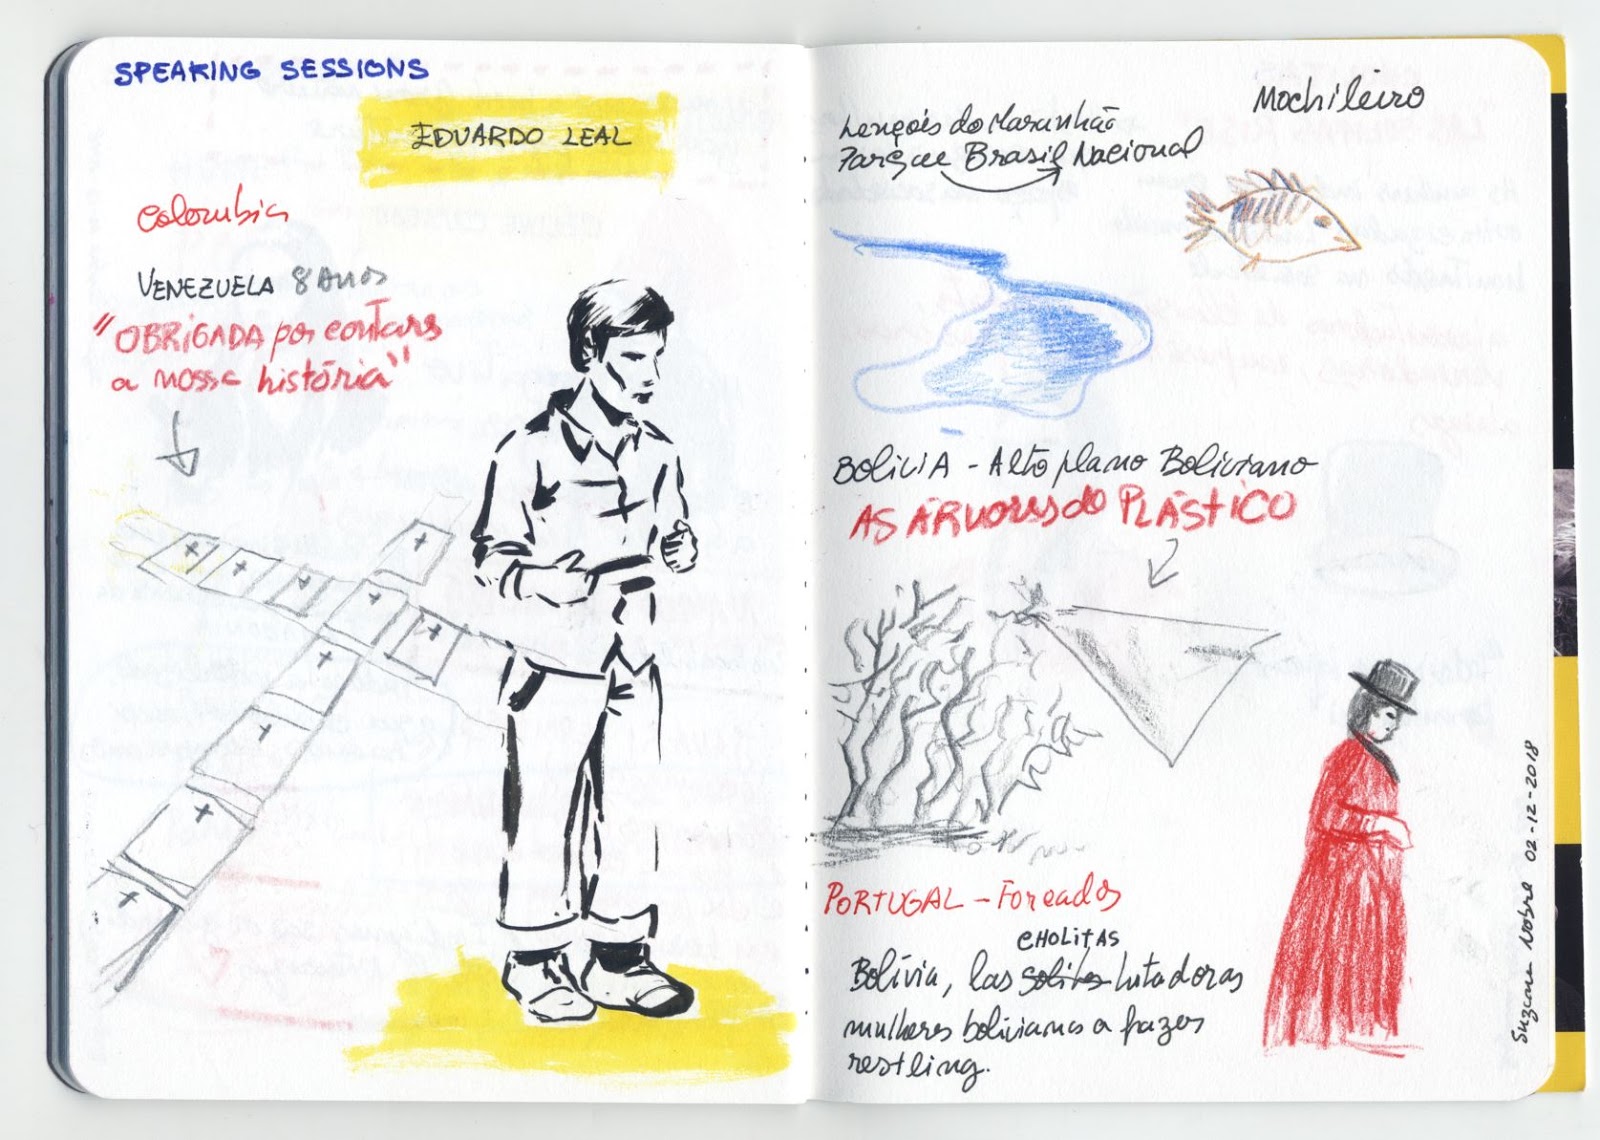 SPEAKING SESSIONS
EDUARDO LEAL
Colombia
VENEZUELA 8 Anos
"OBRIGADA por contares
a nossa história"
Mochileiro
Lençóis do Maranhão
Parque Brasil Nacional
BOLIVIA - Alto plano Boliviano
AS ÁRVORES do PLÁSTICO
PORTUGAL - Forcados
CHOLITAS
Bolívia, las lutadoras
mulheres bolivianas a fazer
restling.
Suzana Nobre 02-12-2018